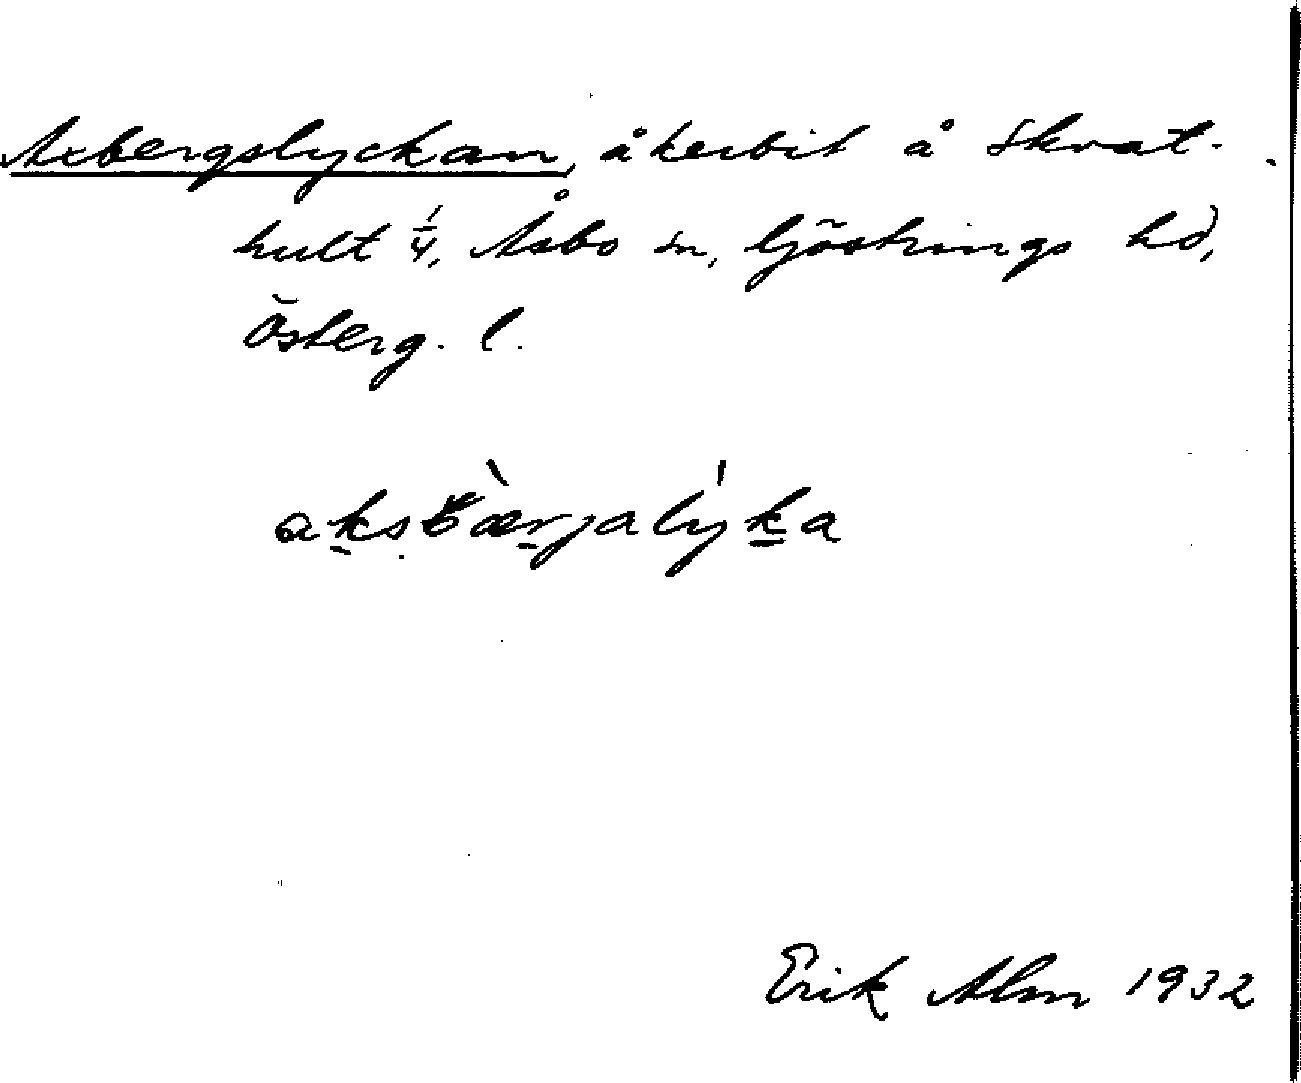 Axbergslyckan, åkerbit å Skrat-
hult 1/4, Åsbo sn, Göstrings hd,
Österg. l.
aksbæ̀rjalýka
Erik Alm 1932